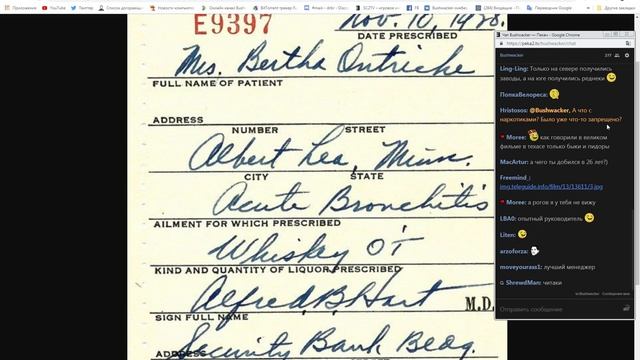 E9397
Nov. 10, 19
DATE PRESCRIBED
Mrs. Bertha
FULL NAME OF PATIENT
ADDRESS
NUMBER STREET
Albert Lea, Minn.
CITY STATE
Acute Bronchitis
AILMENT FOR WHICH PRESCRIBED
Whiskey
KIND AND QUANTITY OF LIQUOR PRESCRIBED
Alfred. B. Hart M.D.
SIGN FULL NAME
Security Bank Bldg.
ADDRESS
Чат Bushwacker — Пекач - Google Chrome
Bushwacker
277
Ling-Ling: Только на севере получились
заводы, а на юге получились реднеки
ПопкаВелореса:
Hristosos: @Bushwacker, А что с
наркотиками? Было уже что-то запрещено?
Moree: как говорили в великом
фильме в техасе только быки и пидоры
MacArtur: а чего ты добился в 26 лет?)
Freemind_:
img.teleguide.info/film/13/13611/3.jpg
Moree: а рогов я у тебя не вижу
LBA0: опытный руководитель
Liten:
arzoforza:
moveyourass1: лучший менеджер
ShrewdMan: читаки
Отправить сообщение